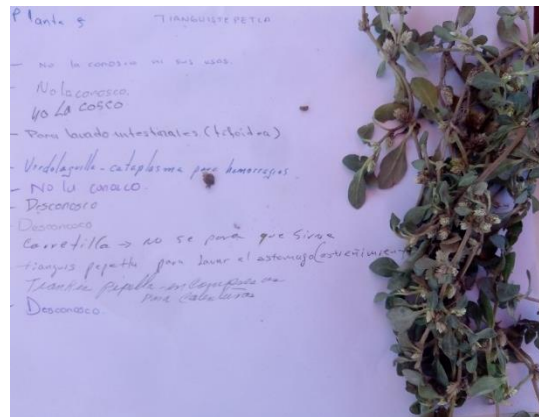 Planta 5 TIANGUISTEPETLA
- No la conosia ni sus usos.
- No la conosco.
NO LA COSCO
- Para lavado intestinales (tifoidea)
- Verdolaguilla - cataplasma para hemorragias
- No la conosco
- Desconosco
Desconosco
Carretilla → no se para que sirve
tianguis pepetla para lavar el estomago (estreñimiento)
para calenturas
- Desconosco.